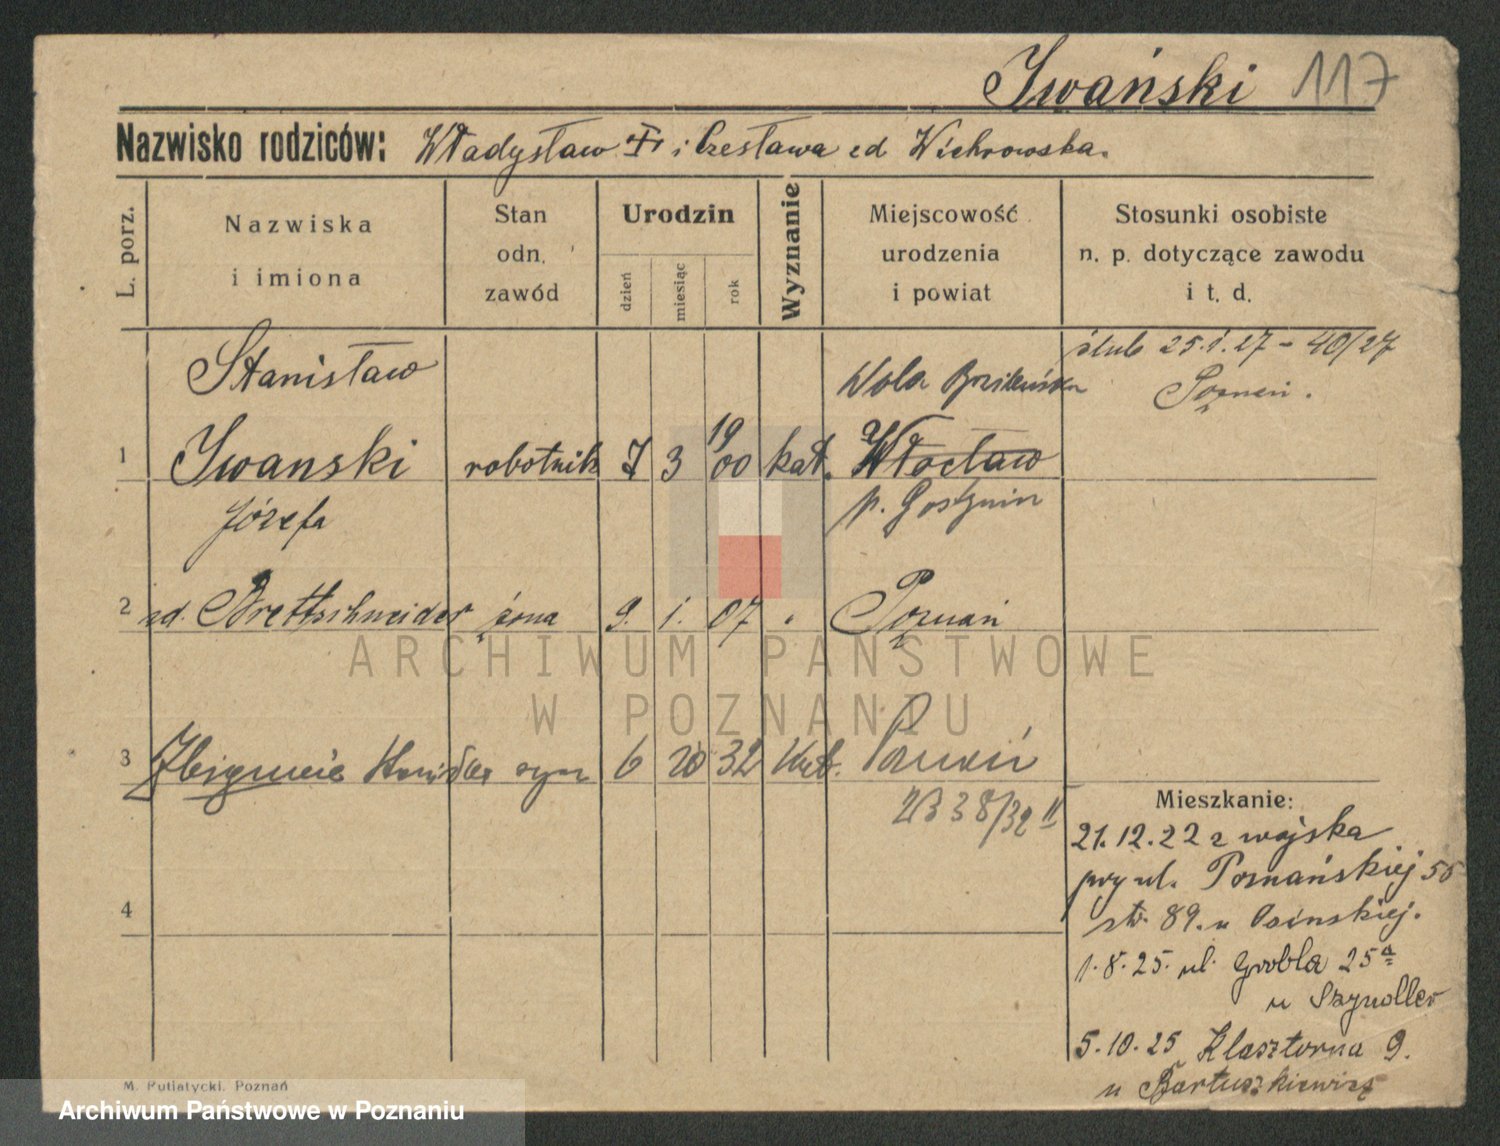 Iwański 117
Nazwisko rodziców: Władysław i Czesława zd Wichrowska.
L. porz.
Nazwiska
i imiona
Stan
odn.
zawód
Urodzin
dzień
miesiąc
rok
Wyznanie
Miejscowość
urodzenia
i powiat
Stosunki osobiste
n. p. dotyczące zawodu
i t. d.
ślub 25.1.27 - 40/27
Poznań.
Stanisław
Wola
1 Iwanski robotnik 7 3 1900 kat. Włocław
p. Gostynin
Józefa
2 zd. Brettschneider żona 9. 1. 07 " Poznań
ARCHIWUM PAŃSTWOWE
W POZNANIU
3 Zbigniew syn 6 10 32 kat. Poznań
38/32 II
4
Mieszkanie:
21.12.22 z wojska
przy ul. Poznańskiej 50
str. 89. u Osinskiej.
1.8.25. ul. Grobla 25a
u Szymoller
5.10.25 Klasztorna 9.
u Bartuszkiewicz
M. Putiatycki. Poznań
Archiwum Państwowe w Poznaniu